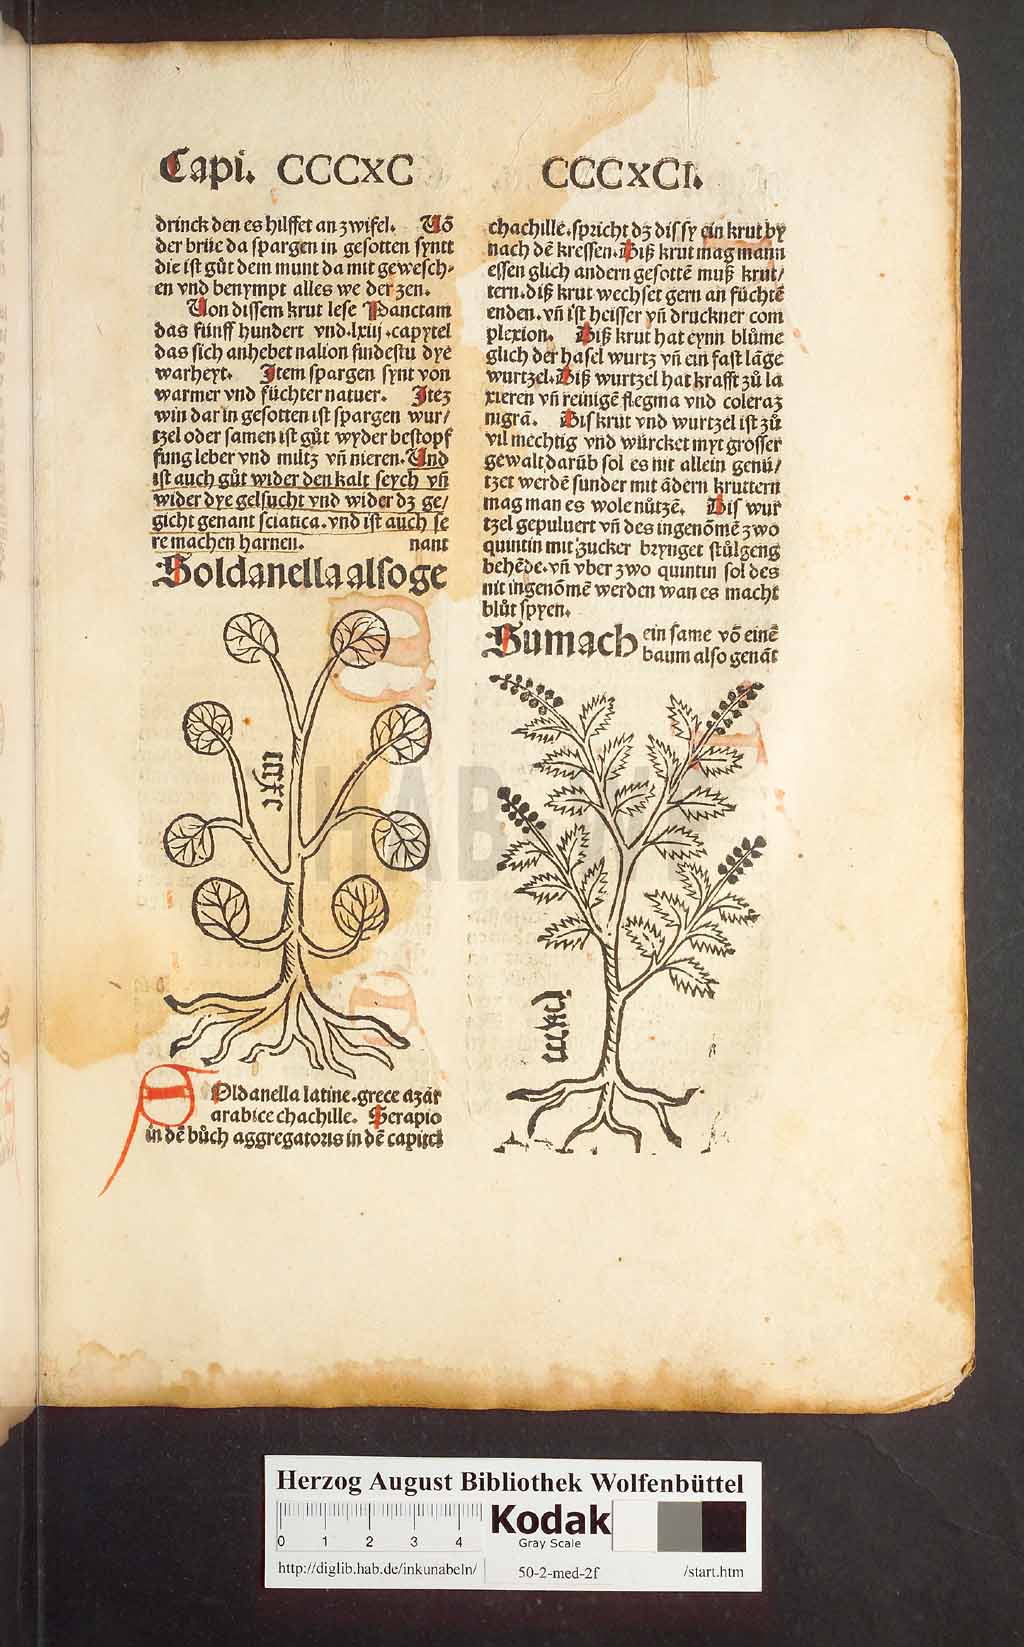 Capi. CCCxC
drinck den es hilffet an zwifel. Vō
der brüe da spargen in gesotten syntt
die ist gůt dem munt da mit gewesch-
en vnd benympt alles we der zen.
Von dissem krut lese Panctam
das fünff hundert vnd.lxiij.capytel
das sich anhebet nalion sindestu dye
warheyt. Item spargen synt von
warmer vnd füchter natuer. Itez
win dar in gesotten ist spargen wur/
tzel oder samen ist gůt wyder bestopf
fung leber vnd miltz vn̄ nieren. Und
ist auch gůt wider den kalt seych vn̄
wider dye gelsucht vnd wider dz ge/
gicht genant sciatica.vnd ist auch se
re machen harnen. nant
Soldanella also ge
cccxc
Oldanella latine.grece azar
arabice chachille. Serapio
in dē bůch aggregatoris in dē capitel
CCCxCI.
chachille.spricht dz dis sy ein krut by
nach dē kressen. Diß krut mag mann
essen glich andern gesottē muß krut/
tern.diß krut wechset gern an füchtē
enden.vn̄ ist heisser vn̄ druckner com
plexion. Diß krut hat eynn blůme
glich der hasel wurtz vn̄ ein fast lāge
wurtzel. Diß wurtzel hat krafft zů la
xieren vn̄ reinigē flegma vnd coleraz
nigrā. Dis krut vnd wurtzel ist zů
vil mechtig vnd würcket myt grosser
gewalt darūb sol es nit allein genü/
tzet werdē sunder mit ādern kruttern
mag man es wole nützē. Dis wur
tzel gepuluert vn̄ des ingenōmē zwo
quintin mit zucker brynget stůlgeng
behēde.vn̄ vber zwo quintin sol des
nit ingenōmē werden wan es macht
blůt spyen.
Sumach ein same vō einē
baum also genāt
cccxcj
HAB
Herzog August Bibliothek Wolfenbüttel
0 1 2 3 4
Kodak
Gray Scale
http://diglib.hab.de/inkunabeln/ 50-2-med-2f /start.htm